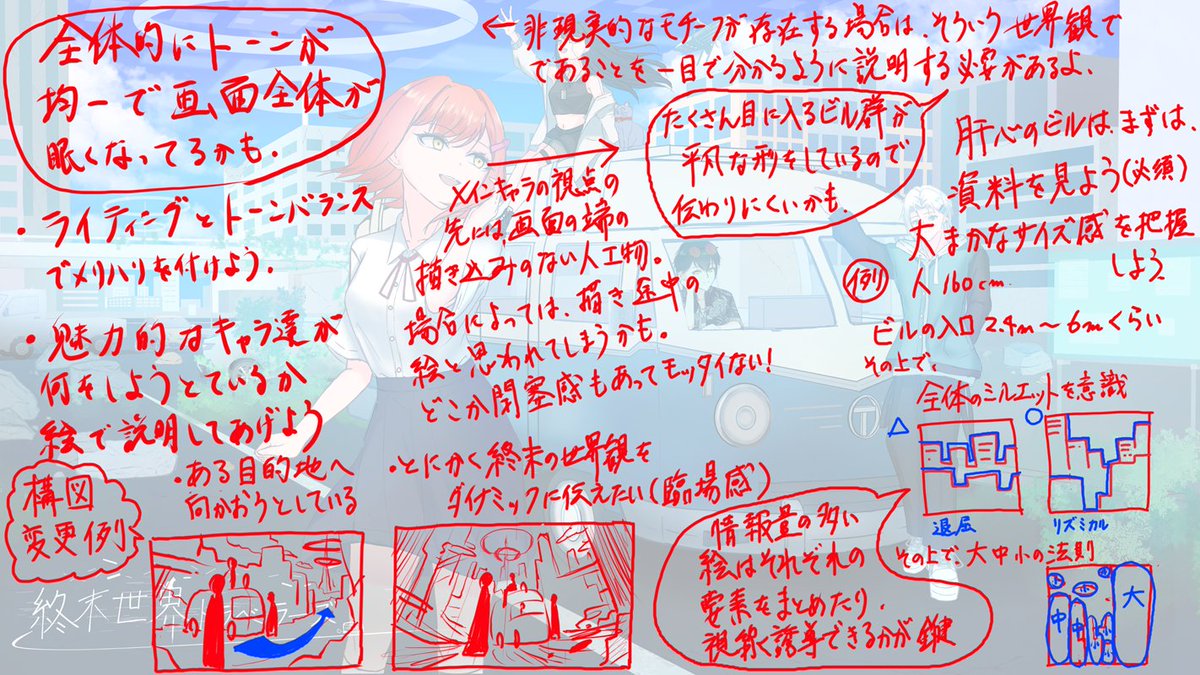 全体的にトーンが
均一で画面全体が
眠くなってるかも.
・ライティングとトーンバランス
でメリハリを付けよう.
・魅力的なキャラ達が
何をしようとているか
絵で説明してあげよう
←非現実的なモチーフが存在する場合は、そういう世界観で
であることを一目で分かるように説明する必要があるよ.
メインキャラの視点の
先には画面の端の
描き込みのない人工物。
場合によっては、描き途中の
絵と思われてしまうかも。
どこか閉塞感もあってモッタイない!
たくさん目に入るビル群が
平凡な形をしているので
伝わりにくいかも.
肝心のビルは、まずは、
資料を見よう(必須)
大まかなサイズ感を把握
しよう
例
人160cm
ビルの入口2.4m〜6mくらい
その上で、
全体のシルエットを意識
△
○
退屈
リズミカル
その上で、大中小の法則
大
中
中
小
小
小
小
構図
変更例
・ある目的地へ
向かおうとしている
・とにかく終末の世界観を
ダイナミックに伝えたい(臨場感)
情報量の多い
絵はそれぞれの
要素をまとめたり、
視線誘導できるかが鍵
終末世界
T